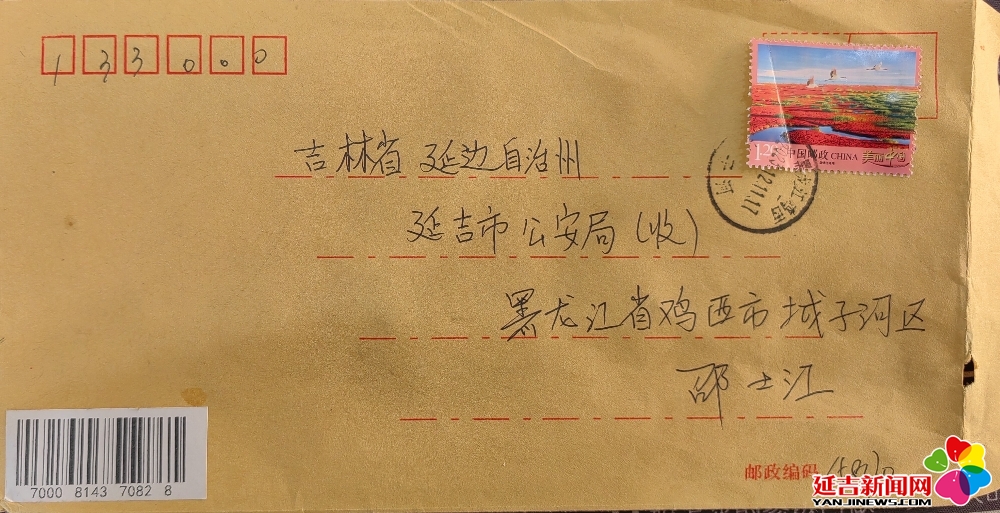 133000
1.20
中国邮政 CHINA
美丽中国
吉林省 延边自治州
延吉市公安局（收）
黑龙江省鸡西市城子河区
邵士江
7000 8143 7082 8
邮政编码
延吉新闻网
YANJINEWS.COM